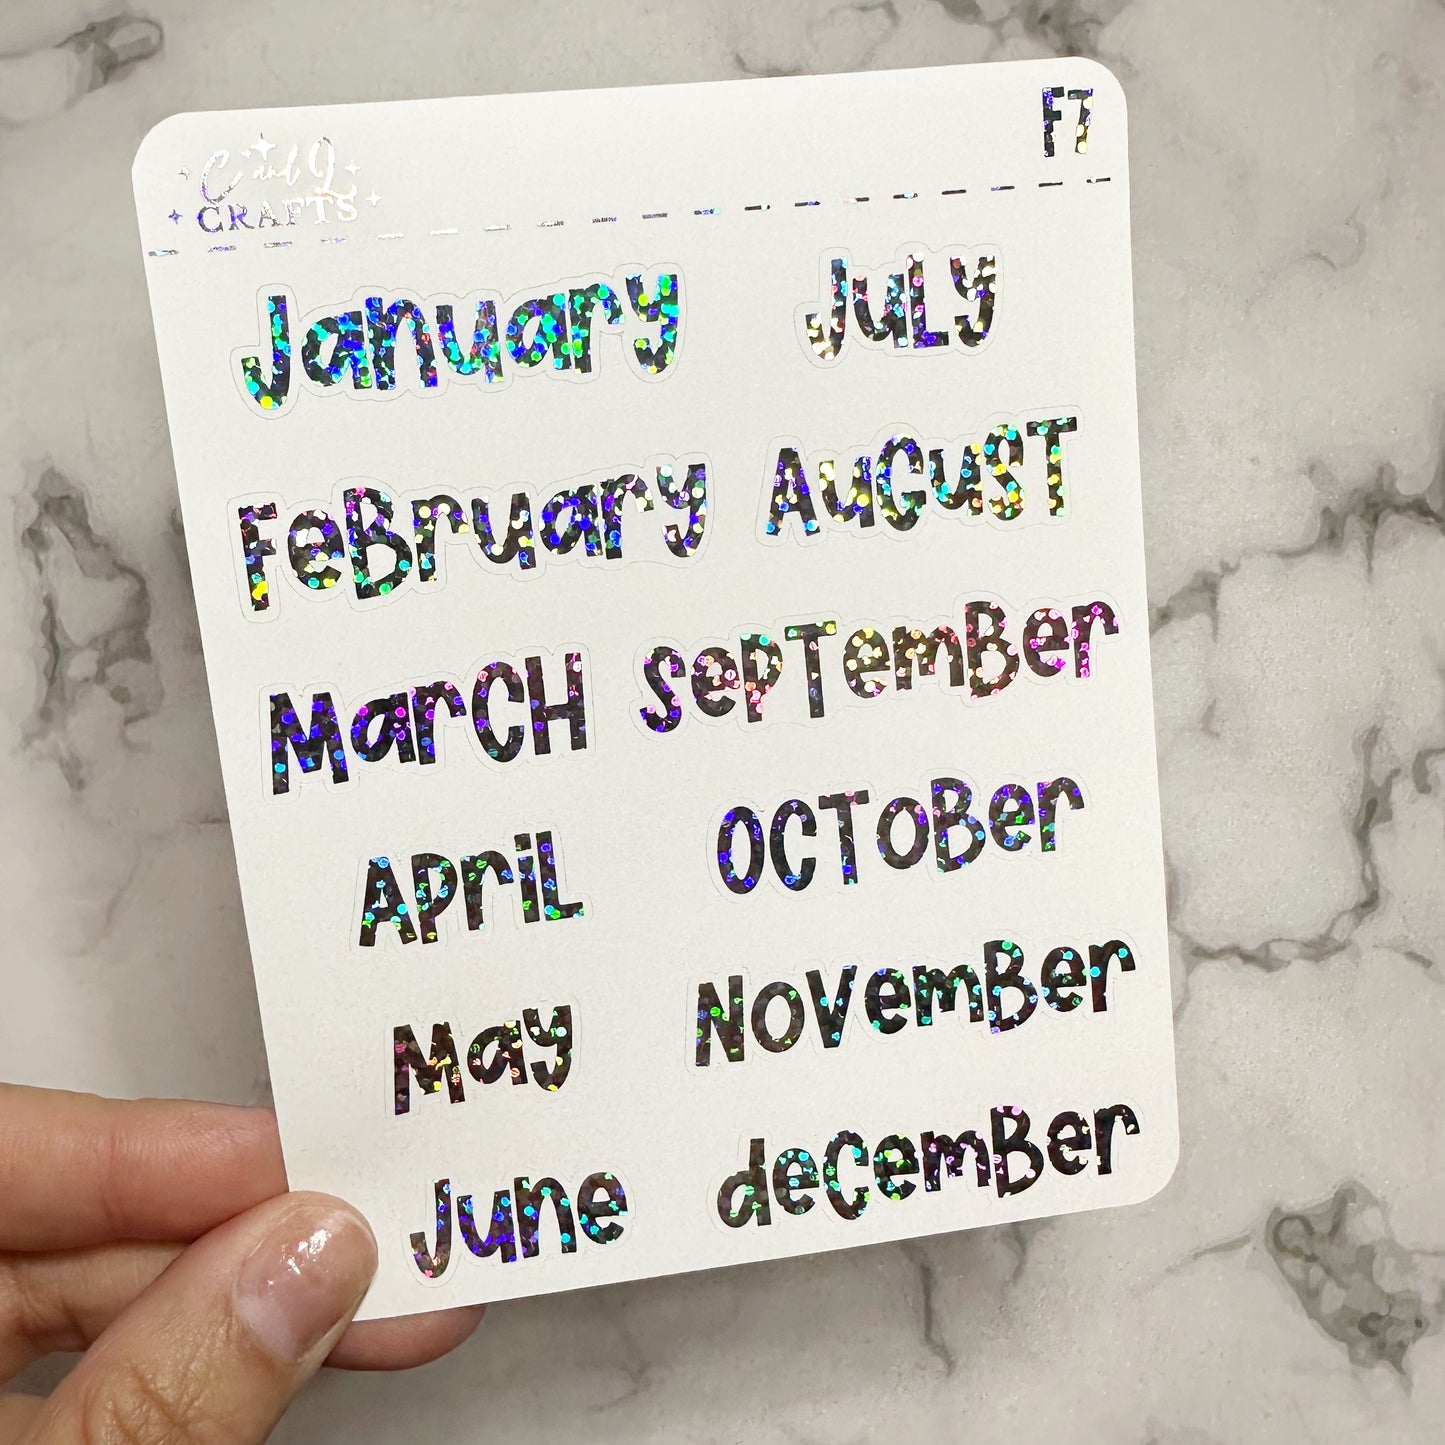 C and L
CRAFTS
F7
January
FeBruary
MarCH
APriL
May
June
JuLy
AuGuST
SePTemBer
OCToBer
NOVemBer
deCemBer